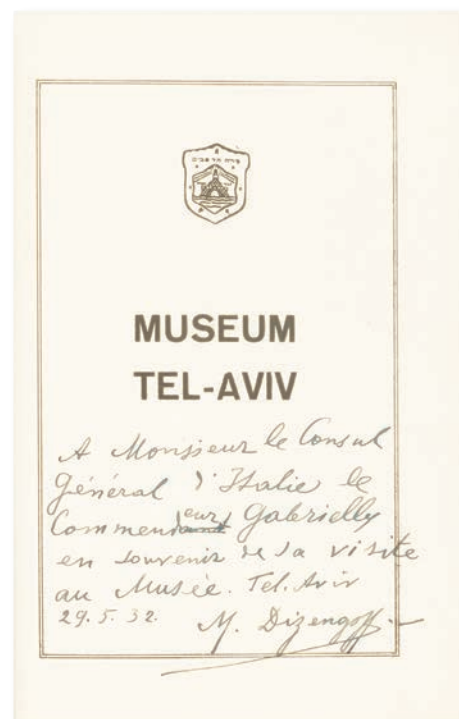 MUSEUM
TEL-AVIV
A Monsieur le Consul
Général d'Italie le
Commendeur Gabrielly
en souvenir de sa visite
au Musée. Tel. Aviv
29.5.32. M. Dizengoff